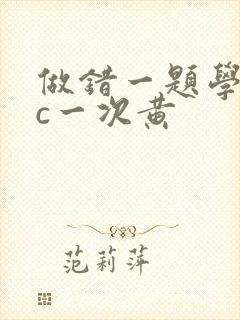 做錯一題學
c一次黄
范莉萍